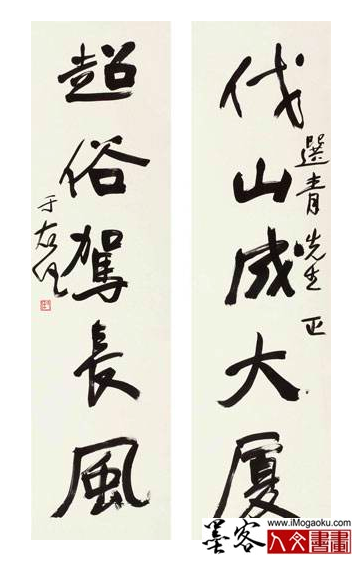 伐山成大厦
選青先生正
超俗駕長風
于右任
墨客
www.iMogaoku.com
人文書畫